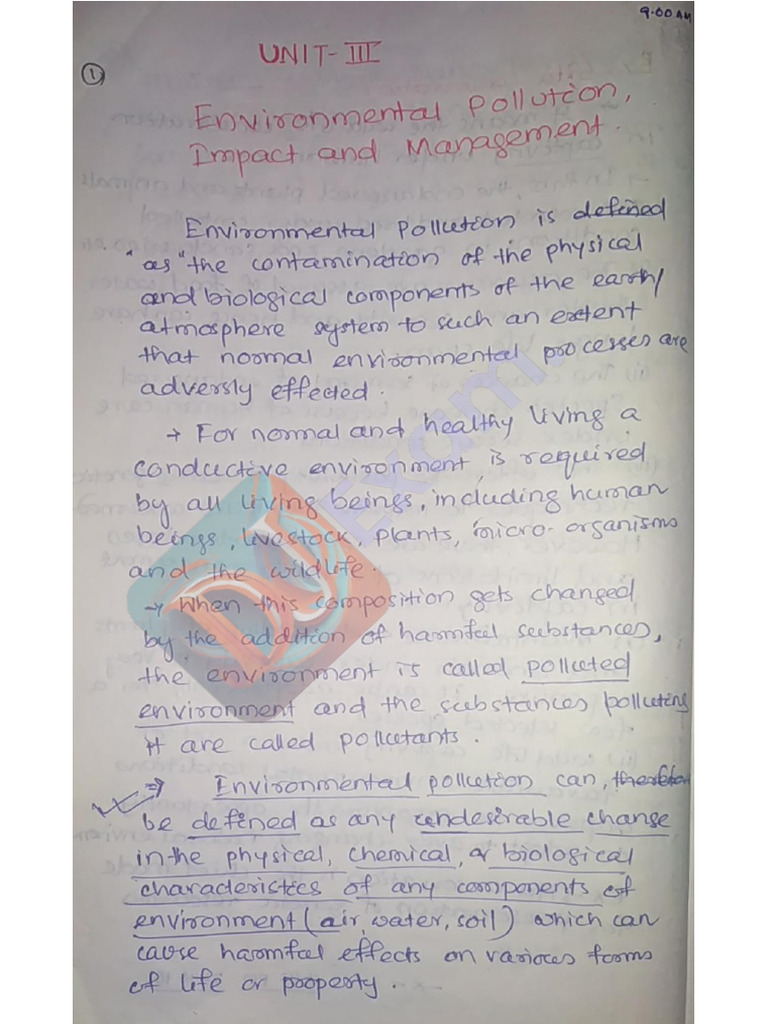 9.00 AM
UNIT-III
1
Environmental Pollution,
Impact and Management.
Environmental Pollution is defined
as "the contamination of the physical
and biological components of the earth/
atmosphere system to such an extent
that normal environmental processes are
adversly effected.
→ For normal and healthy living a
conductive environment is required
by all living beings, including human
beings, livestock, plants, micro-organisms
and the wildlife.
→ When this composition gets changed
by the addition of harmful substances,
the environment is called polluted
environment and the substances polluting
it are called pollutants.
⇒ Environmental pollution can, therefore
be defined as any undesirable change
in the physical, chemical, or biological
characteristics of any components of
environment (air, water, soil) which can
cause harmful effects on various forms
of life or property.
DU Exam